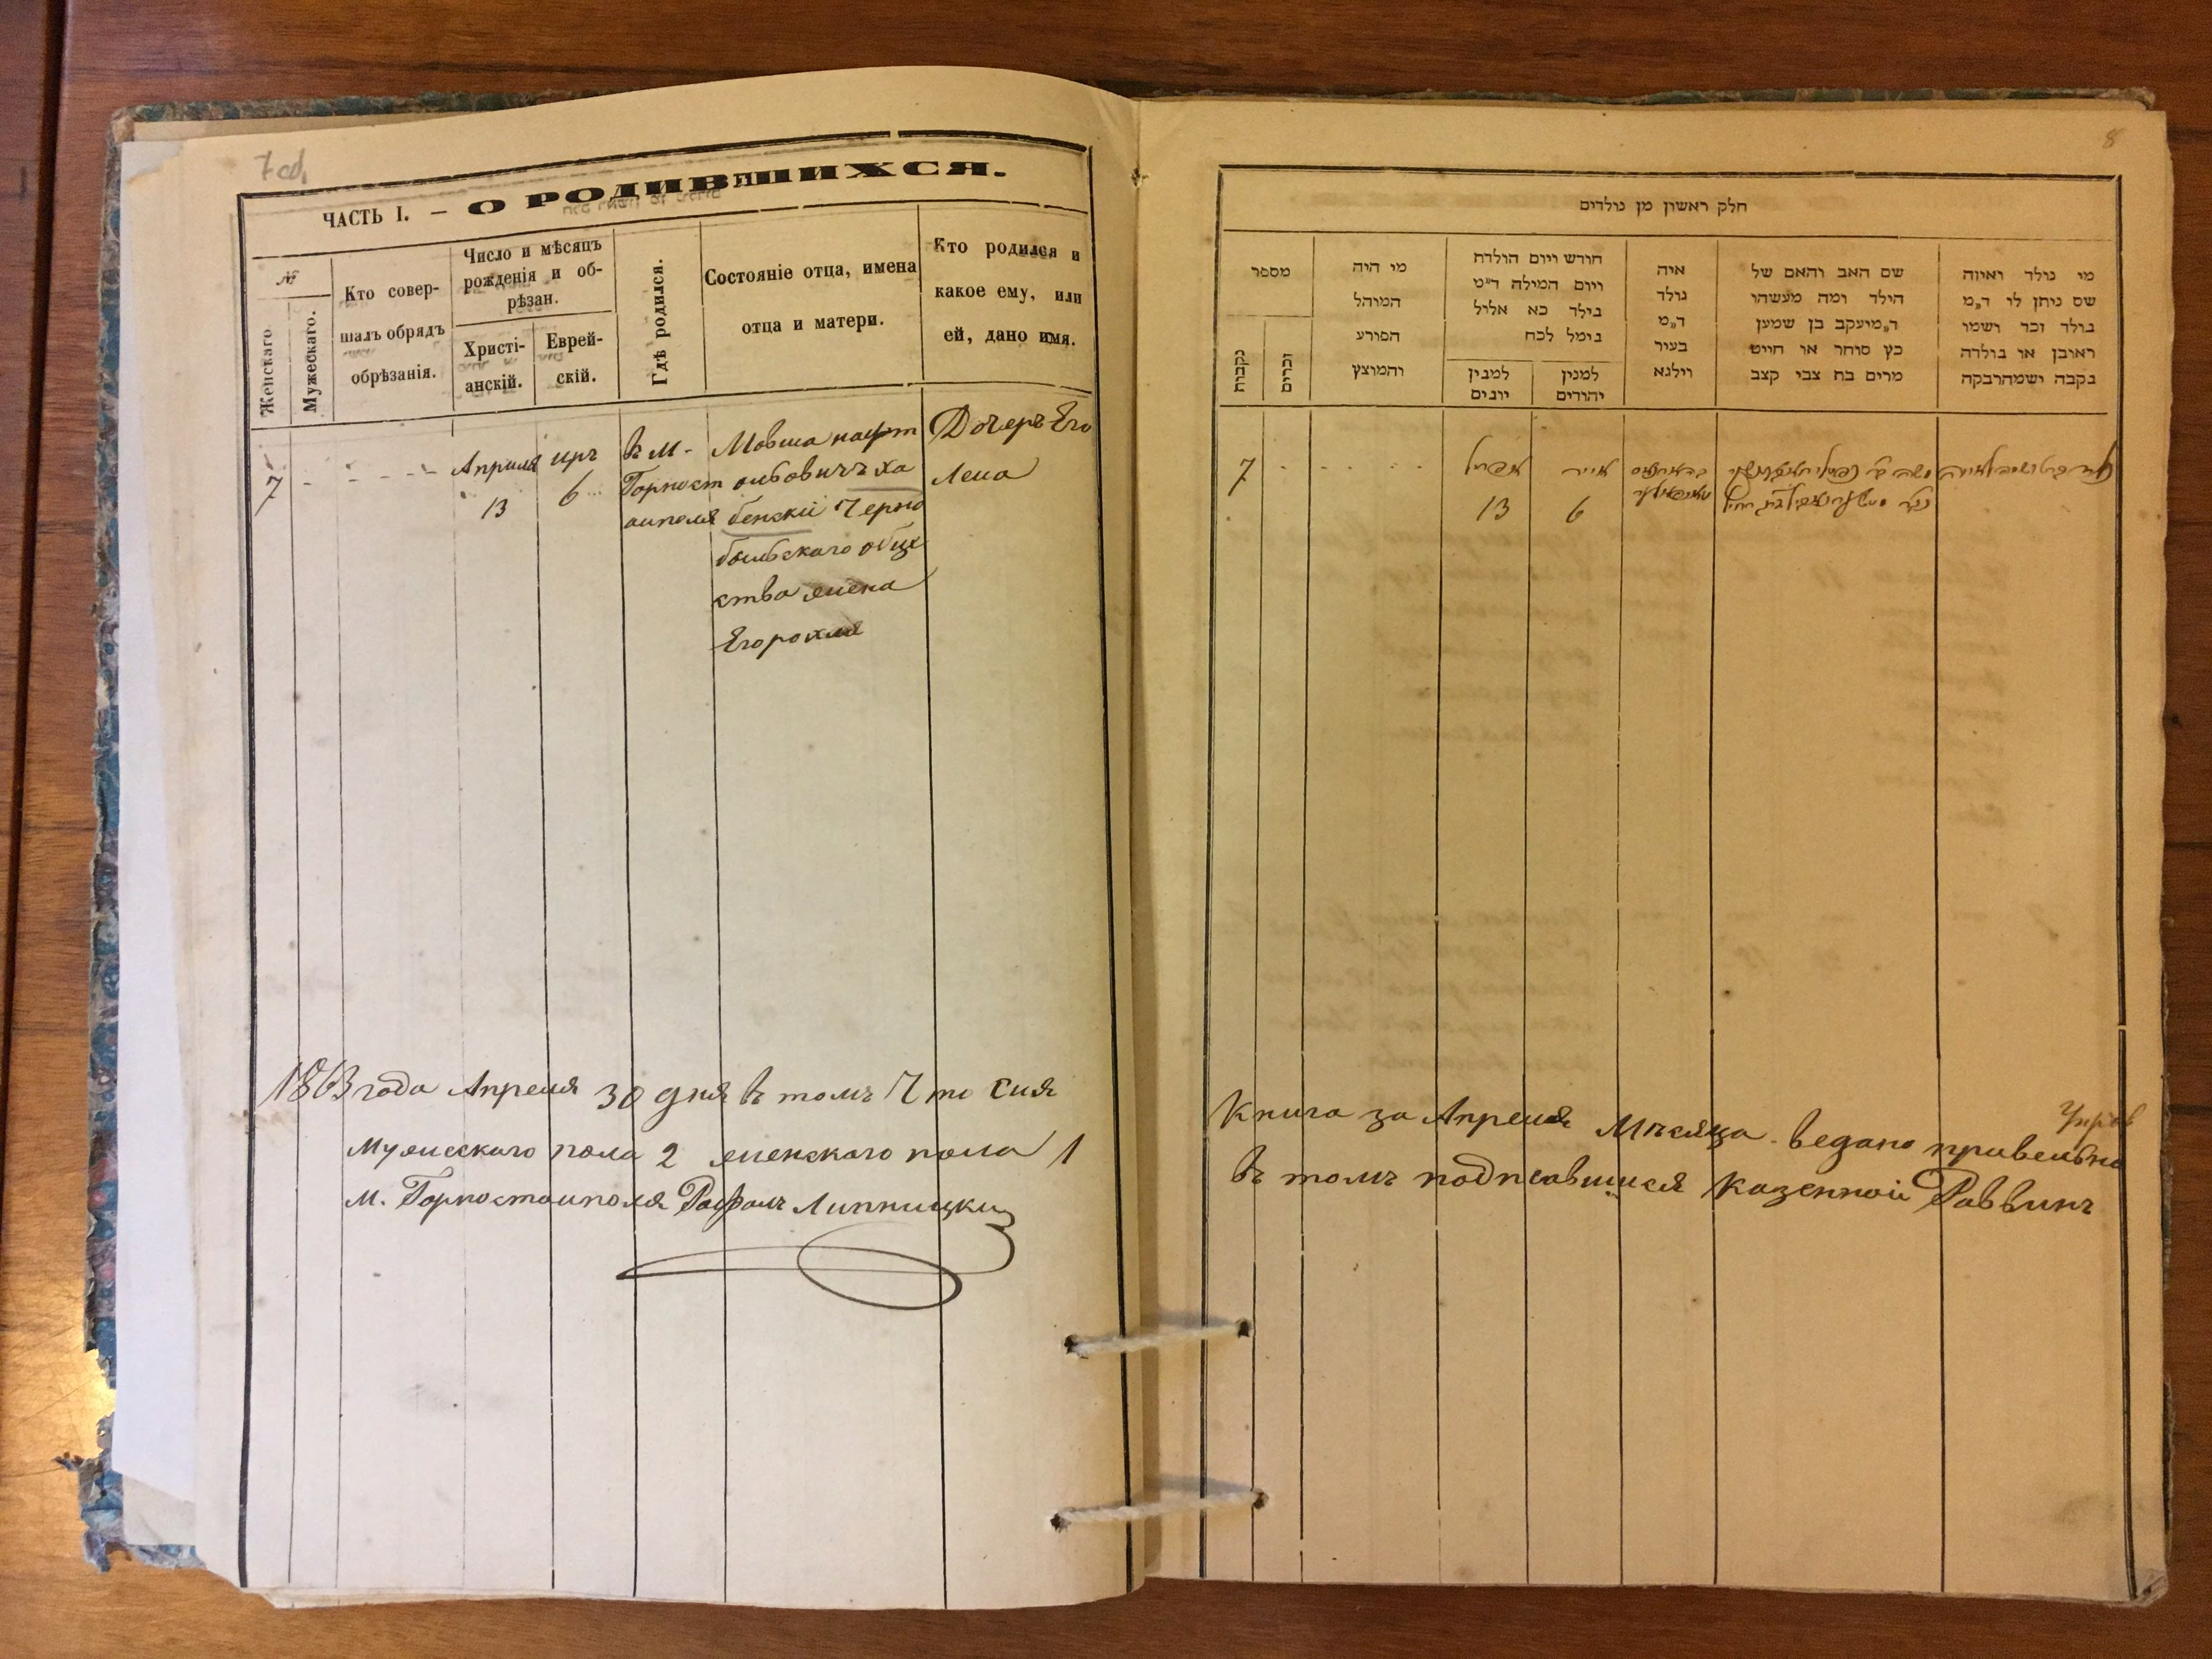 7 об.
ЧАСТЬ I. — О РОДИВШИХСЯ.
№
Женскаго
Мужескаго.
Кто совер-
шалъ обрядъ
обрѣзанія.
Число и мѣсяцъ
рожденія и об-
рѣзан.
Христі-
анскій.
Еврей-
скій.
Гдѣ родился.
Состояніе отца, имена
отца и матери.
Кто родился и
какое ему, или
ей, дано имя.
7
Апреля
13
иръ
6
въ М.
Горност
аиполя
Мовша нафт
олбовичъ ха
бенскій Черно
былскаго общ
ства жена
Его рохля
Дочеръ Его
Леиа
1863 года Апреля 30 дня въ томъ Что Сия
Мужескаго пола 2 женскаго пола 1
М. Горностаиполя Рафалъ Липницкий
8
חלק ראשון מן נולדים
מספר
נקבות
זכרים
מי היה
המוהל
הפורע
והמוצץ
חודש ויום הולדת
ויום המילה ד״מ
בילד כא אלול
בימל לכח
למנין
יונים
למנין
יהודים
איה
נולד
ד״מ
בעיר
וילנא
שם האב והאם של
הילד ומה מעשהו
ד״מ יעקב בן שמעון
כץ סוחר או חייט
מרים בת צבי קצב
מי נולד ואיזה
שם ניתן לו ד״מ
נולד זכר ושמו
ראובן או נולדה
נקבה ושמה רבקה
7
אפריל
13
אייר
6
Книга за Апреля Месяца ведано правельно
въ томъ подписавшися Казенной Раввинъ